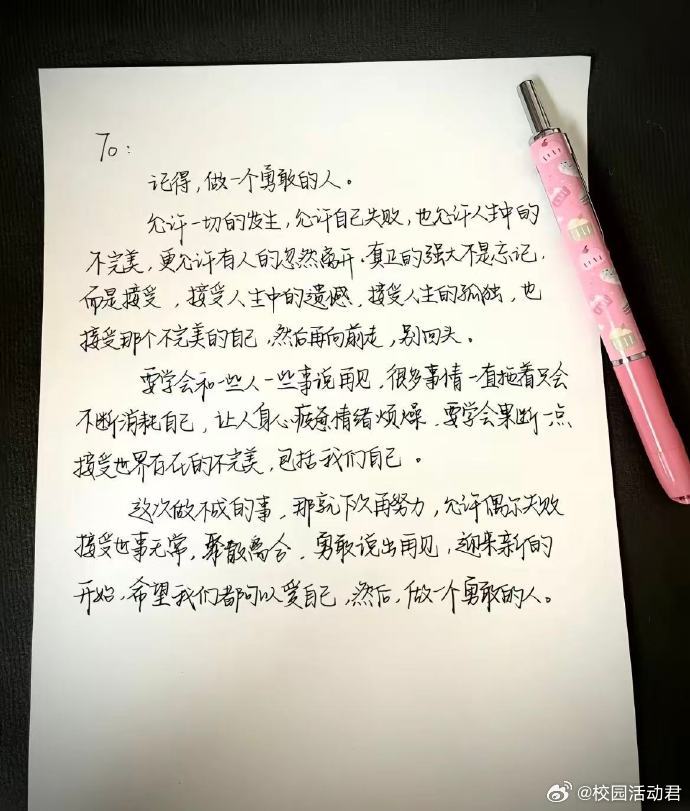 To:
记得,做一个勇敢的人。
允许一切的发生,允许自己失败,也允许人生中的
不完美,更允许有人的忽然离开.真正的强大不是忘记,
而是接受,接受人生中的遗憾,接受人生的孤独,也
接受那个不完美的自己,然后再向前走,别回头。
要学会和一些人一些事说再见,很多事情一直拖着只会
不断消耗自己,让人身心疲惫情绪烦燥,要学会果断一点
接受世界存在的不完美,包括我们自己。
这次做不成的事,那就下次再努力,允许偶尔失败
接受世事无常,聚散离合,勇敢说出再见,迎来新的
开始,希望我们都可以爱自己,然后,做一个勇敢的人。
@校园活动君